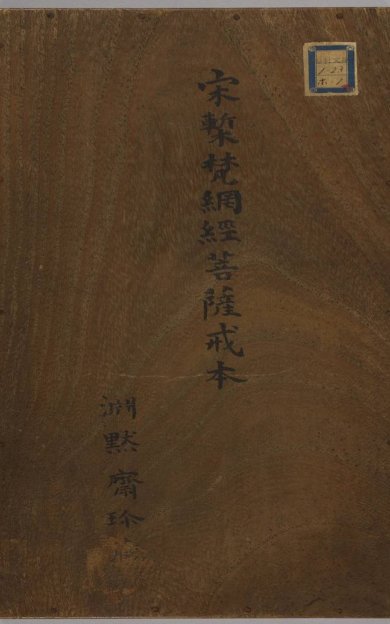 宋槧梵網經菩薩戒本
淵黙齋珍
1-23